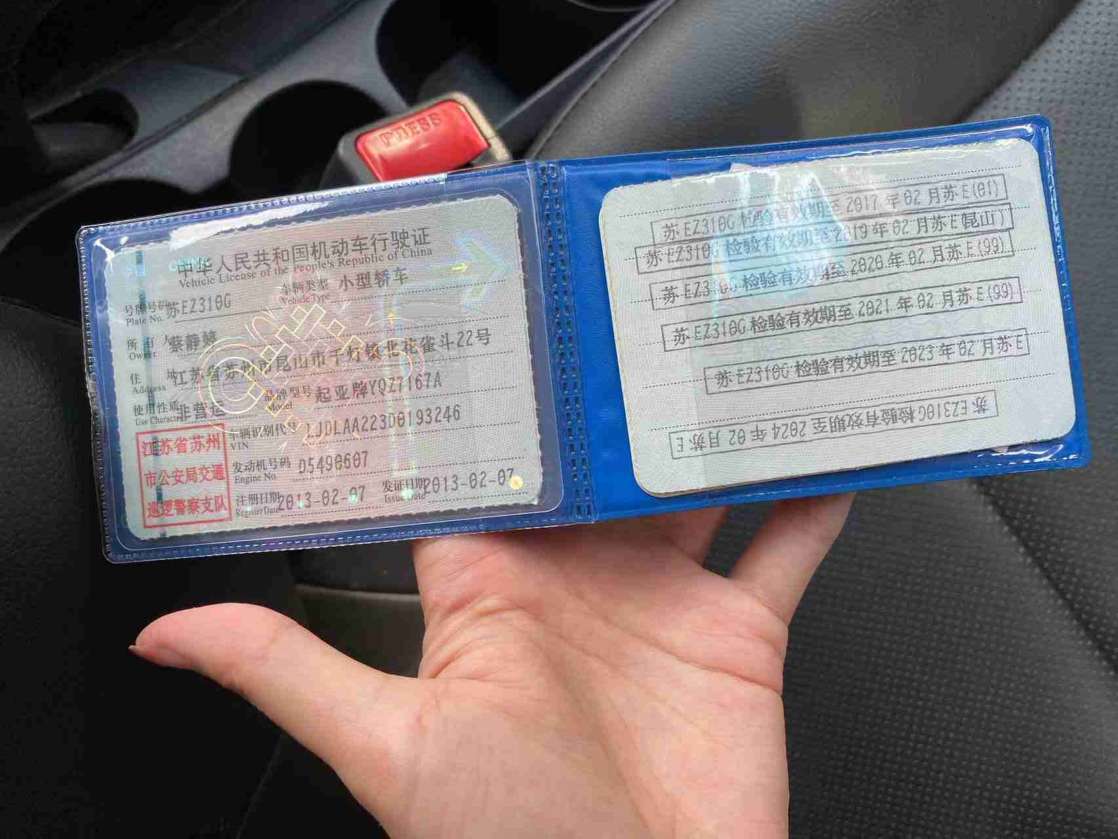 PRESS
中华人民共和国机动车行驶证
Vehicle License of the People's Republic of China
号牌号码 苏EZ310G 车辆类型 小型轿车
Plate No. Vehicle Type
所有人 蔡静婷
Owner
住址 江苏省苏州市昆山市千灯镇北花雀斗22号
Address
使用性质 非营运 品牌型号 起亚牌YQZ7167A
Use Character Model
江苏省苏州
市公安局交通
巡逻警察支队
车辆识别代号 LJDLAA223D0193246
VIN
发动机号码 D5490607
Engine No.
注册日期 2013-02-07 发证日期 2013-02-07
Register Date Issue Date
苏EZ310G 检验有效期至 2017年02月苏E(01)
苏EZ310G 检验有效期至 2019年02月苏E(昆山)
苏EZ310G 检验有效期至 2020年02月苏E(99)
苏EZ310G 检验有效期至 2021年02月苏E(99)
苏EZ310G 检验有效期至 2023年02月苏E
苏EZ310G 检验有效期至 2024年02月苏E